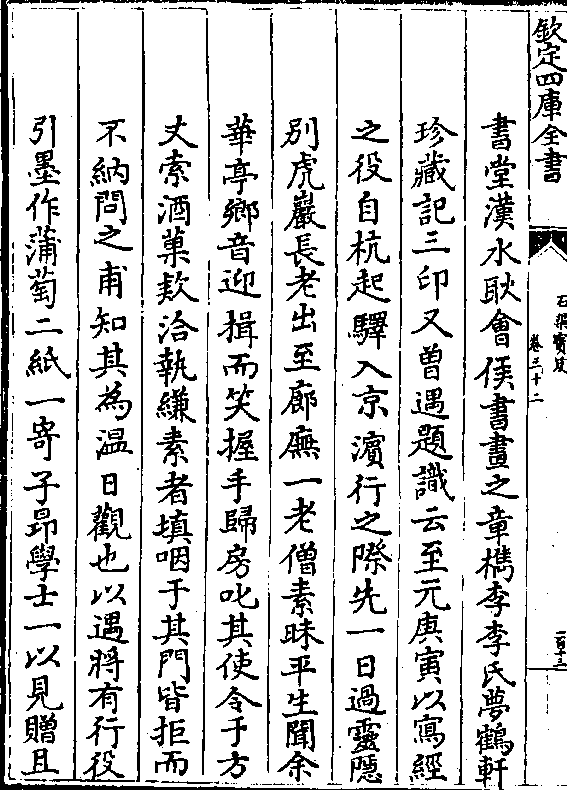 欽定四庫全書
石渠寶笈
卷三十二
一百十三
書堂漢水耿會侯書畫之章檇李李氏夢鶴軒
珍藏記三印又曾遇題識云至元庚寅以寫經
之役自杭起驛入京濵行之際先一日過靈隱
別虎巖長老出至廊廡一老僧素昧平生聞余
華亭鄉音迎揖而笑握手歸房叱其使令于方
丈索酒菓欵洽執縑素者填咽于其門皆拒而
不納問之甫知其為温日觀也以遇將有行役
引墨作蒲萄二紙一寄子昂學士一以見贈且